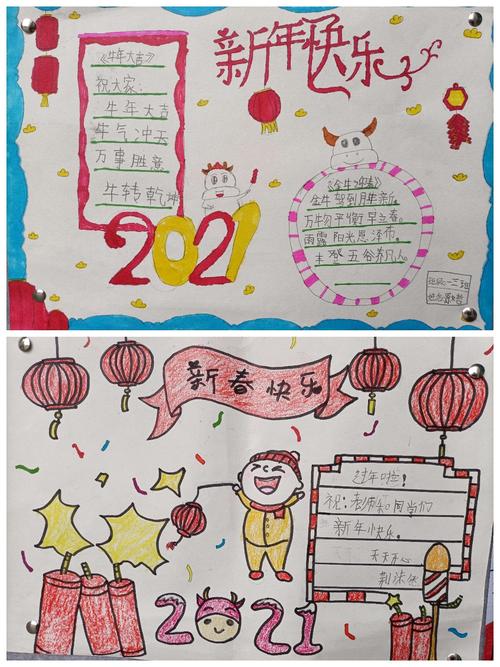 新年快乐
《牛年大吉》
祝大家:
牛年大吉
牛气冲天
万事胜意
牛转乾坤
2021
《金牛迎春》
金牛驾到月年新,
万物平衡早立春。
雨露阳光恩泽布,
丰登五谷养凡人。
班级:一三班
新春快乐
过年啦!
祝:老师和同学们
新年快乐。
天天开心
2021